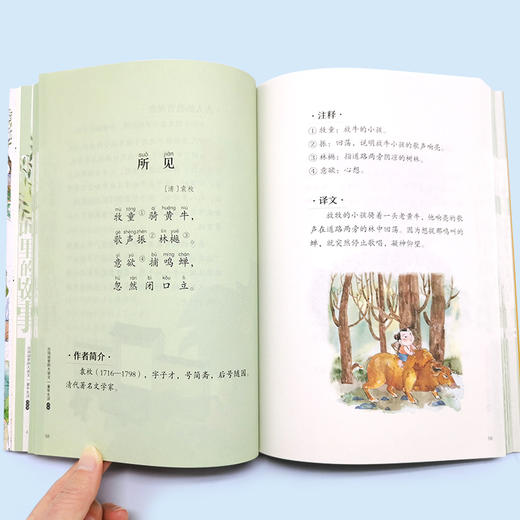 suǒ jiàn
所 见
[清] 袁枚
mù tóng qí huáng niú
牧童①骑黄牛，
gē shēng zhèn lín yuè
歌声振②林樾③。
yì yù bǔ míng chán
意欲④捕鸣蝉，
hū rán bì kǒu lì
忽然闭口立。
·作者简介·
袁枚（1716—1798），字子才，号简斋，后号随园。
清代著名文学家。
·注释·
① 牧童：放牛的小孩。
② 振：回荡，说明放牛小孩的歌声响亮。
③ 林樾：指道路两旁阴凉的树林。
④ 意欲：心想。
·译文·
放牧的小孩骑着一头老黄牛，他响亮的歌
声在道路两旁的林中回荡。因为想捉那鸣叫的
蝉，就突然停止歌唱，凝神仰望。
里的故事